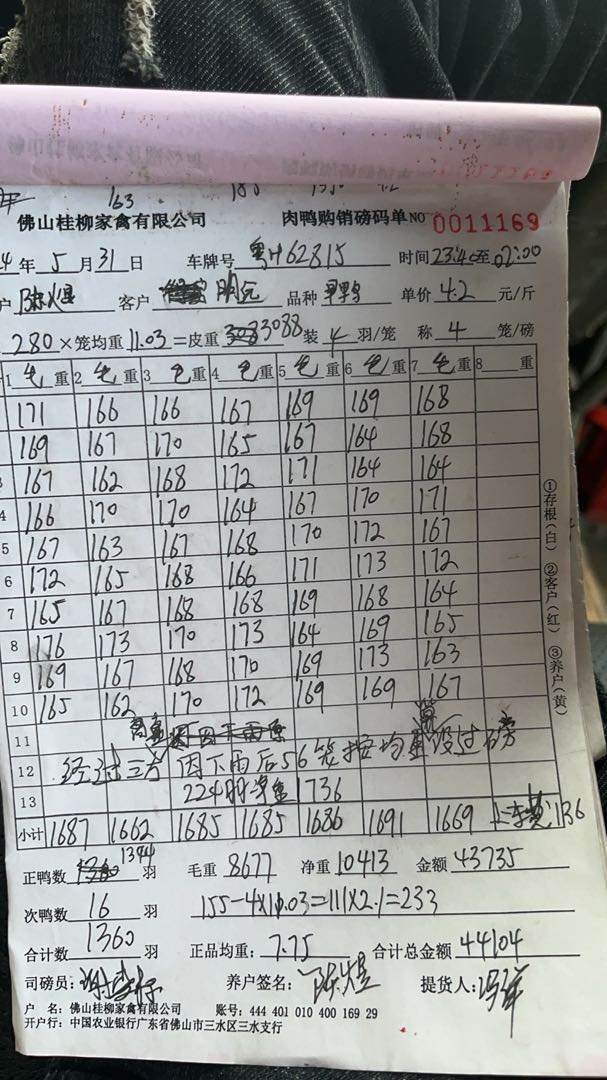 163 180
佛山桂柳家禽有限公司 肉鸭购销磅码单NO 0011169
4 年 5 月 31 日 车牌号 粤H62815 时间 23:40 至 02:00
户 陈煜 客户 明元 品种 单价 4.2 元/斤
280 ×笼均重 11.03 =皮重 3088 装 4 羽/笼 称 4 笼/磅
1 毛 重 2 毛 重 3 毛 重 4 毛 重 5 毛 重 6 毛 重 7 毛 重 8 重
171 166 166 167 169 169 168
169 167 170 165 167 164 168
3 167 162 168 172 171 164 164
4 166 170 170 164 167 170 171
5 167 163 167 168 170 172 167
6 172 165 168 166 171 173 172
7 165 167 168 168 169 168 164
8 176 173 170 173 164 169 165
9 169 167 168 170 169 173 163
10 165 162 170 172 169 169 167
11
12 经过三方 因下雨后56笼按均重 没过磅
13 224羽 1736
小计 1687 1662 1685 1685 1686 1691 1669 1736
正鸭数 1344 羽 毛重 8677 净重 10413 金额 43735
次鸭数 16 羽 155-4×11.03=111×2.1=233
合计数 1360 羽 正品均重: 7.75 合计总金额 44104
司磅员: 养户签名: 陈煜 提货人:
户 名: 佛山桂柳家禽有限公司 账号: 444 401 010 400 169 29
开户行: 中国农业银行广东省佛山市三水区三水支行
①存根(白) ②客户(红) ③养户(黄)